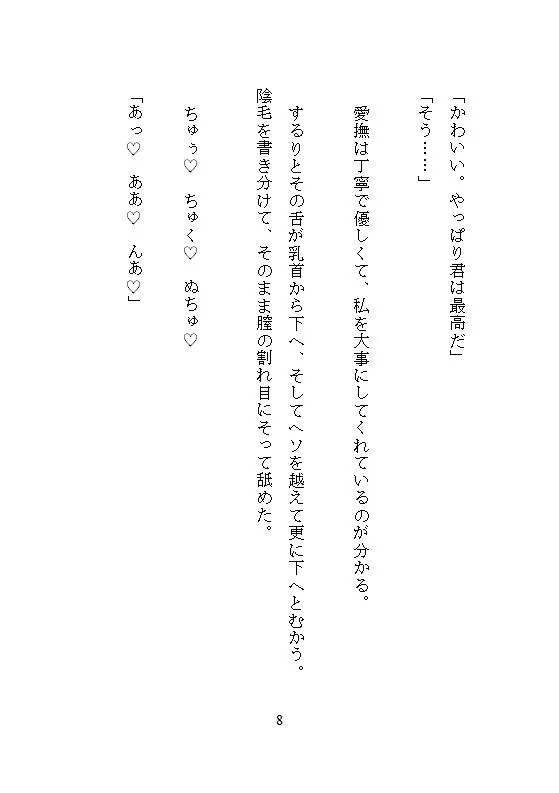 「かわいい。やっぱり君は最高だ」
「そう……」
愛撫は丁寧で優しくて、私を大事にしてくれているのが分かる。
するりとその舌が乳首から下へ、そしてヘソを越えて更に下へとむかう。
陰毛を書き分けて、そのまま膣の割れ目にそって舐めた。
ちゅぅ♡　ちゅく♡　ぬちゅ♡
「あっ♡　ああ♡　んあ♡」
8